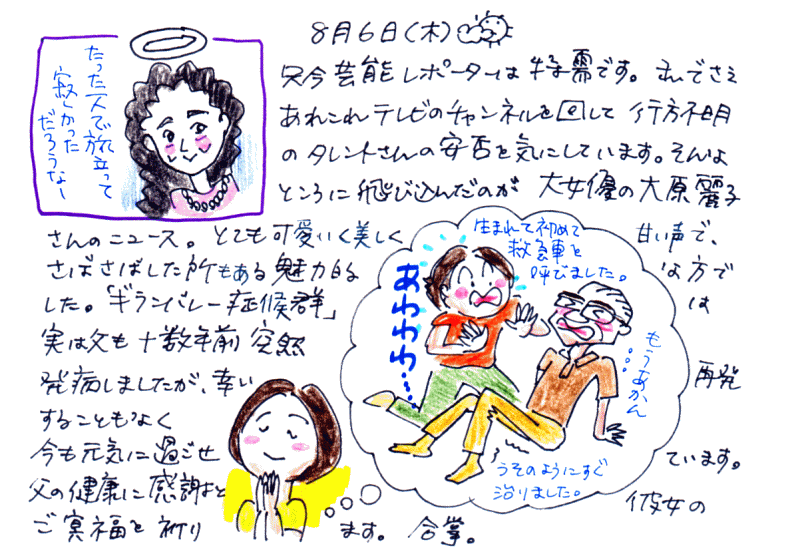 8月6日(木)
只今芸能レポーターは大忙しです。私でさえ
あれこれテレビのチャンネルを回して 行方不明
のタレントさんの安否を気にしています。そんな
ところに飛び込んだのが 大女優の大原麗子
さんのニュース。とても可愛いく美しく 甘い声で、
さばさばした所もある魅力的 な方で
した。「ギランバレー症候群」 は
実は父も十数年前突然
発病しましたが、幸い 再発
することもなく
今も元気に過ごせ ています。
父の健康に感謝すると 彼女の
ご冥福を祈り ます。 合掌。
たった一人で旅立って
寂しかった
だろうなー
生まれて初めて
救急車を
呼びました。
あわわわ・・・・
もうあかん・・・・
うそのようにすぐ
治りました。